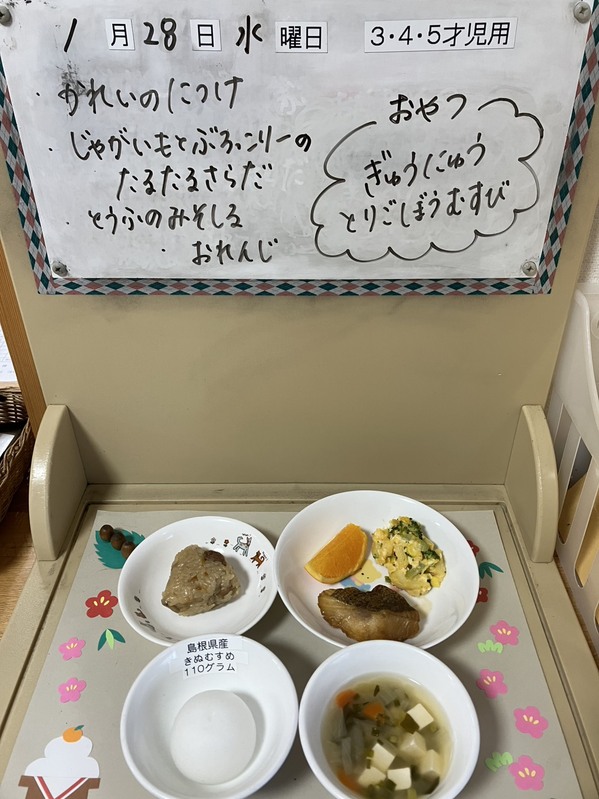 1月28日水曜日 3・4・5才児用
・かれいのにつけ
・じゃがいもとぶろっこりーの
たるたるさらだ
・とうふのみそしる
・おれんじ
おやつ
ぎゅうにゅう
とりごぼうむすび
島根県産
きぬむすめ
110グラム